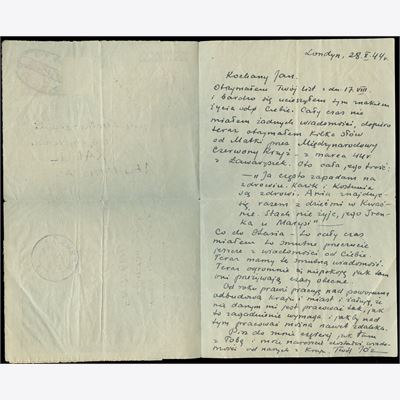 Londyn, 28.X.44r.
Kochany Jan.
Otrzymałem Twój list z dn. 17.VIII.
i bardzo się ucieszyłem tym znakiem
życia od Ciebie. Cały czas nie
miałem żadnych wiadomości, dopiero
teraz otrzymałem kilka słów
od Matki przez Międzynarodowy
Czerwony Krzyż - z marca 44r
z Ławarysek. Oto cała jego treść:
— „Ja często zapadam na
zdrowiu. Karik i Kostunia
są zdrowi. Ania znajduje
się razem z dziećmi w
Stach nie żyje, jego Irenka
u Marysi" —
Co do Stasia - to cały czas
miałem to smutne przeczucie
jeszcze z wiadomości od Ciebie
Teraz mamy tę smutną wiadomość.
Teraz ogromnie się niepokoję jak tam
oni przeżywają czasy obecne.
Od roku prawie pracuję nad powojenną
odbudową Kraju i miast i żałuję, że
nie danym mi jest pracować tak, jak
to zagadnienie wymaga i jak by nad
tym pracować można nawet zdaleka.
Pisz do mnie częściej, jak tam
z Tobą i może masz wiadomości
od naszych z Kraju. Twój Józ